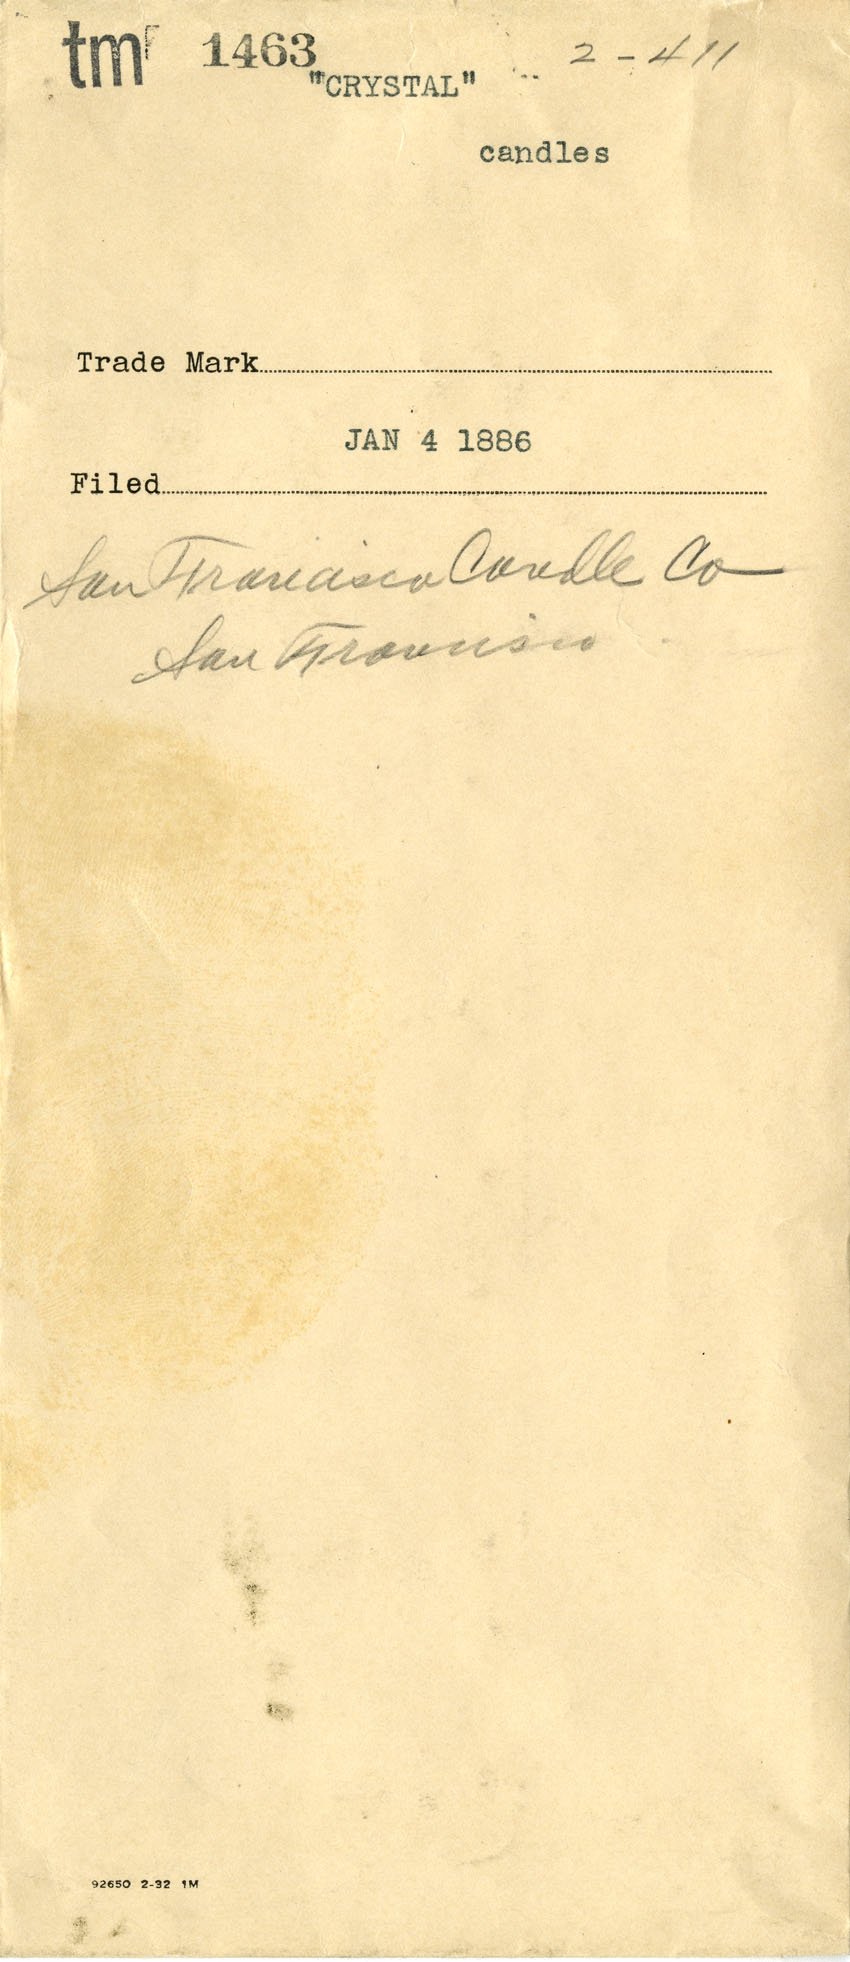 tm 1463 2-411
"CRYSTAL"
candles
Trade Mark
JAN 4 1886
Filed
San Francisco Candle Co
San Francisco
92650 2-32 1M